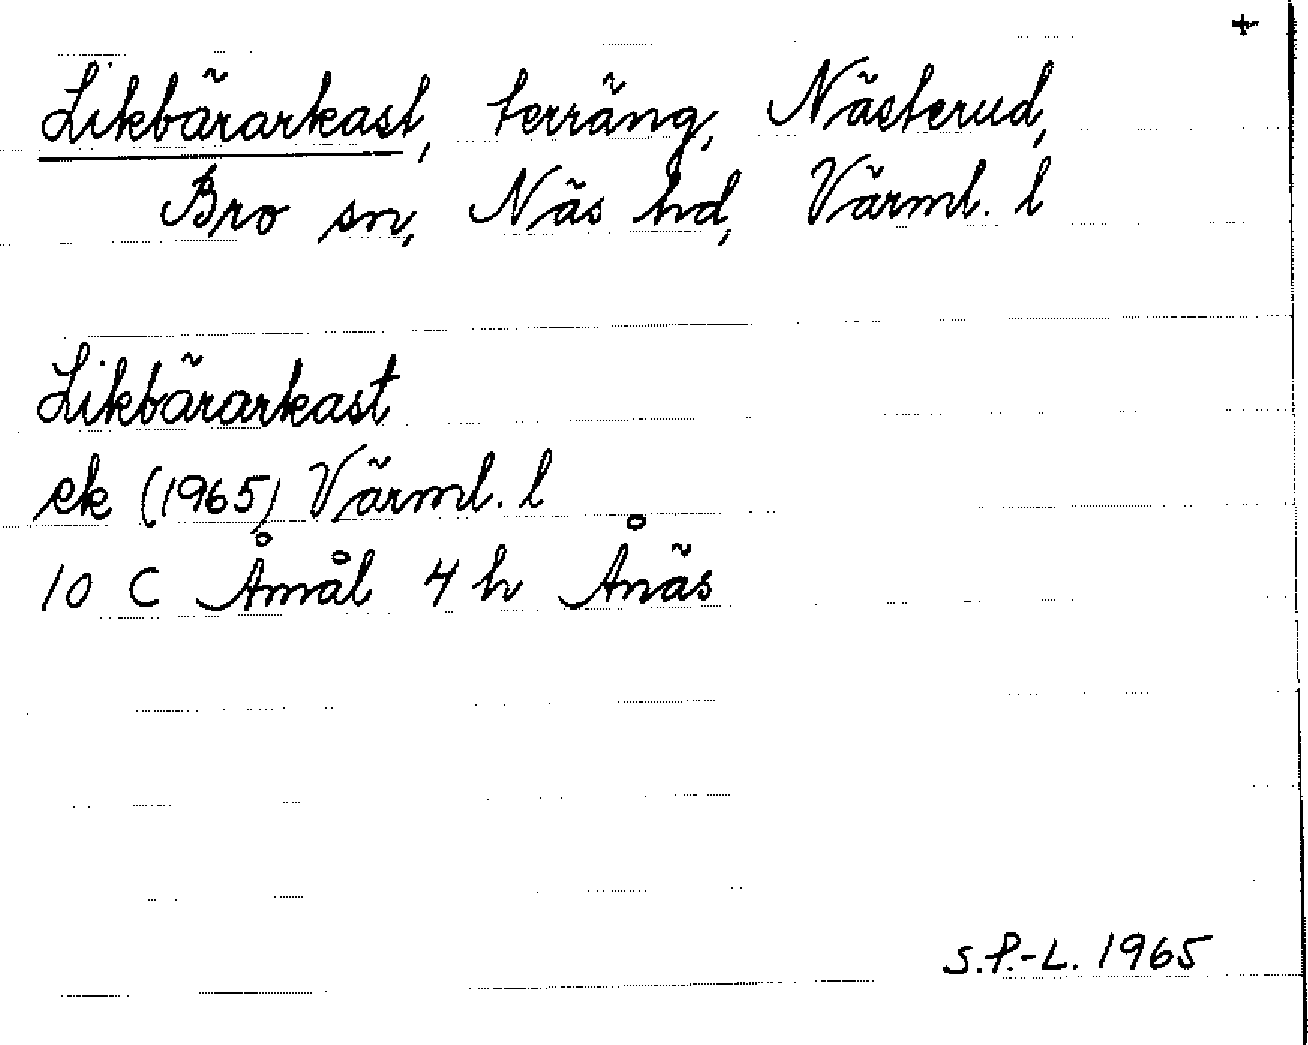 +
Likbärarkast, terräng, Nästerud,
Bro sn, Näs hd, Värml. l
Likbärarkast
ek (1965) Värml. l
10 C Åmål 4 h Ånäs
S.P.-L. 1965